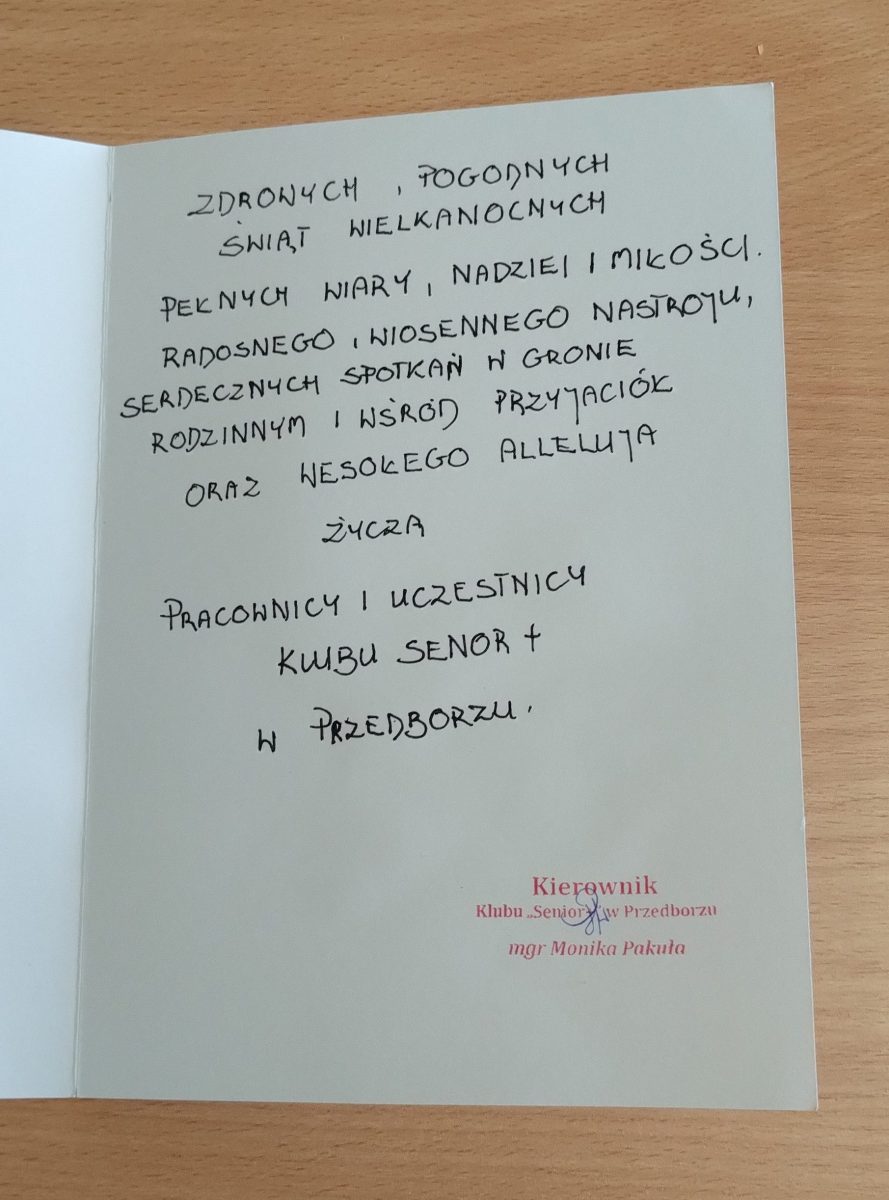 ZDROWYCH, POGODNYCH
ŚWIĄT WIELKANOCNYCH
PEŁNYCH WIARY, NADZIEI I MIŁOŚCI.
RADOSNEGO, WIOSENNEGO NASTROJU,
SERDECZNYCH SPOTKAŃ W GRONIE
RODZINNYM I WŚRÓD PRZYJACIÓŁ
ORAZ WESOŁEGO ALLELUJA
ŻYCZĄ
PRACOWNICY I UCZESTNICY
KLUBU SENOR +
W PRZEDBORZU.
Kierownik
Klubu „Senior+” w Przedborzu
mgr Monika Pakuła